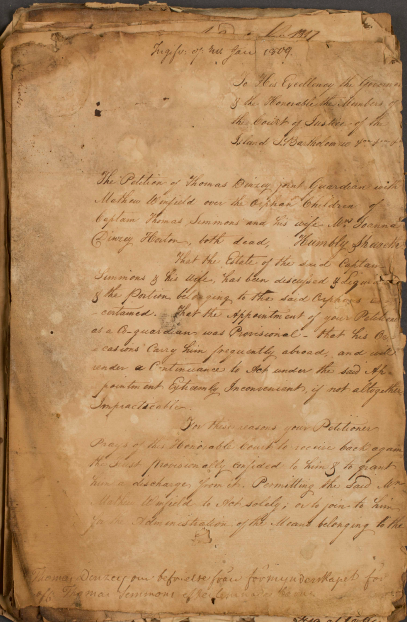 1809
To His Excellency the Governor
& the Honorable the Members of
the Court of Justice of the
Island St Bartholomew
The Petition of Thomas Dinzey, joint Guardian with
Mathew Winfield over the Orphan Children of
Captain Thomas Simmons and his wife Mrs Joanna
Dinzey Horton, both dead, Humbly Sheweth
That the Estate of the said Captain
Simmons & his wife, has been discussed &
& the Portion belonging to the said Orphans
certained. That the Appointment of your Petitioner
as a Co-guardian, was Provisional – that his Oc
casions Carry him frequently abroad, and will
under a Continuance to Act under the said Ap
pointment Extremely Inconvenient, if not altogether
Impracticable
For these reasons your Petitioner
Prays of the Honorable Court to receive back again
the trust provisionally confided to him & to grant
him a discharge from it, Permitting the said Mr
Mathew Winfield to Act solely, or to join to him
in the Administration of the Means belonging to the
Thomas Dinzey om befrielse från förmynderskapet för
Thomas Simmons